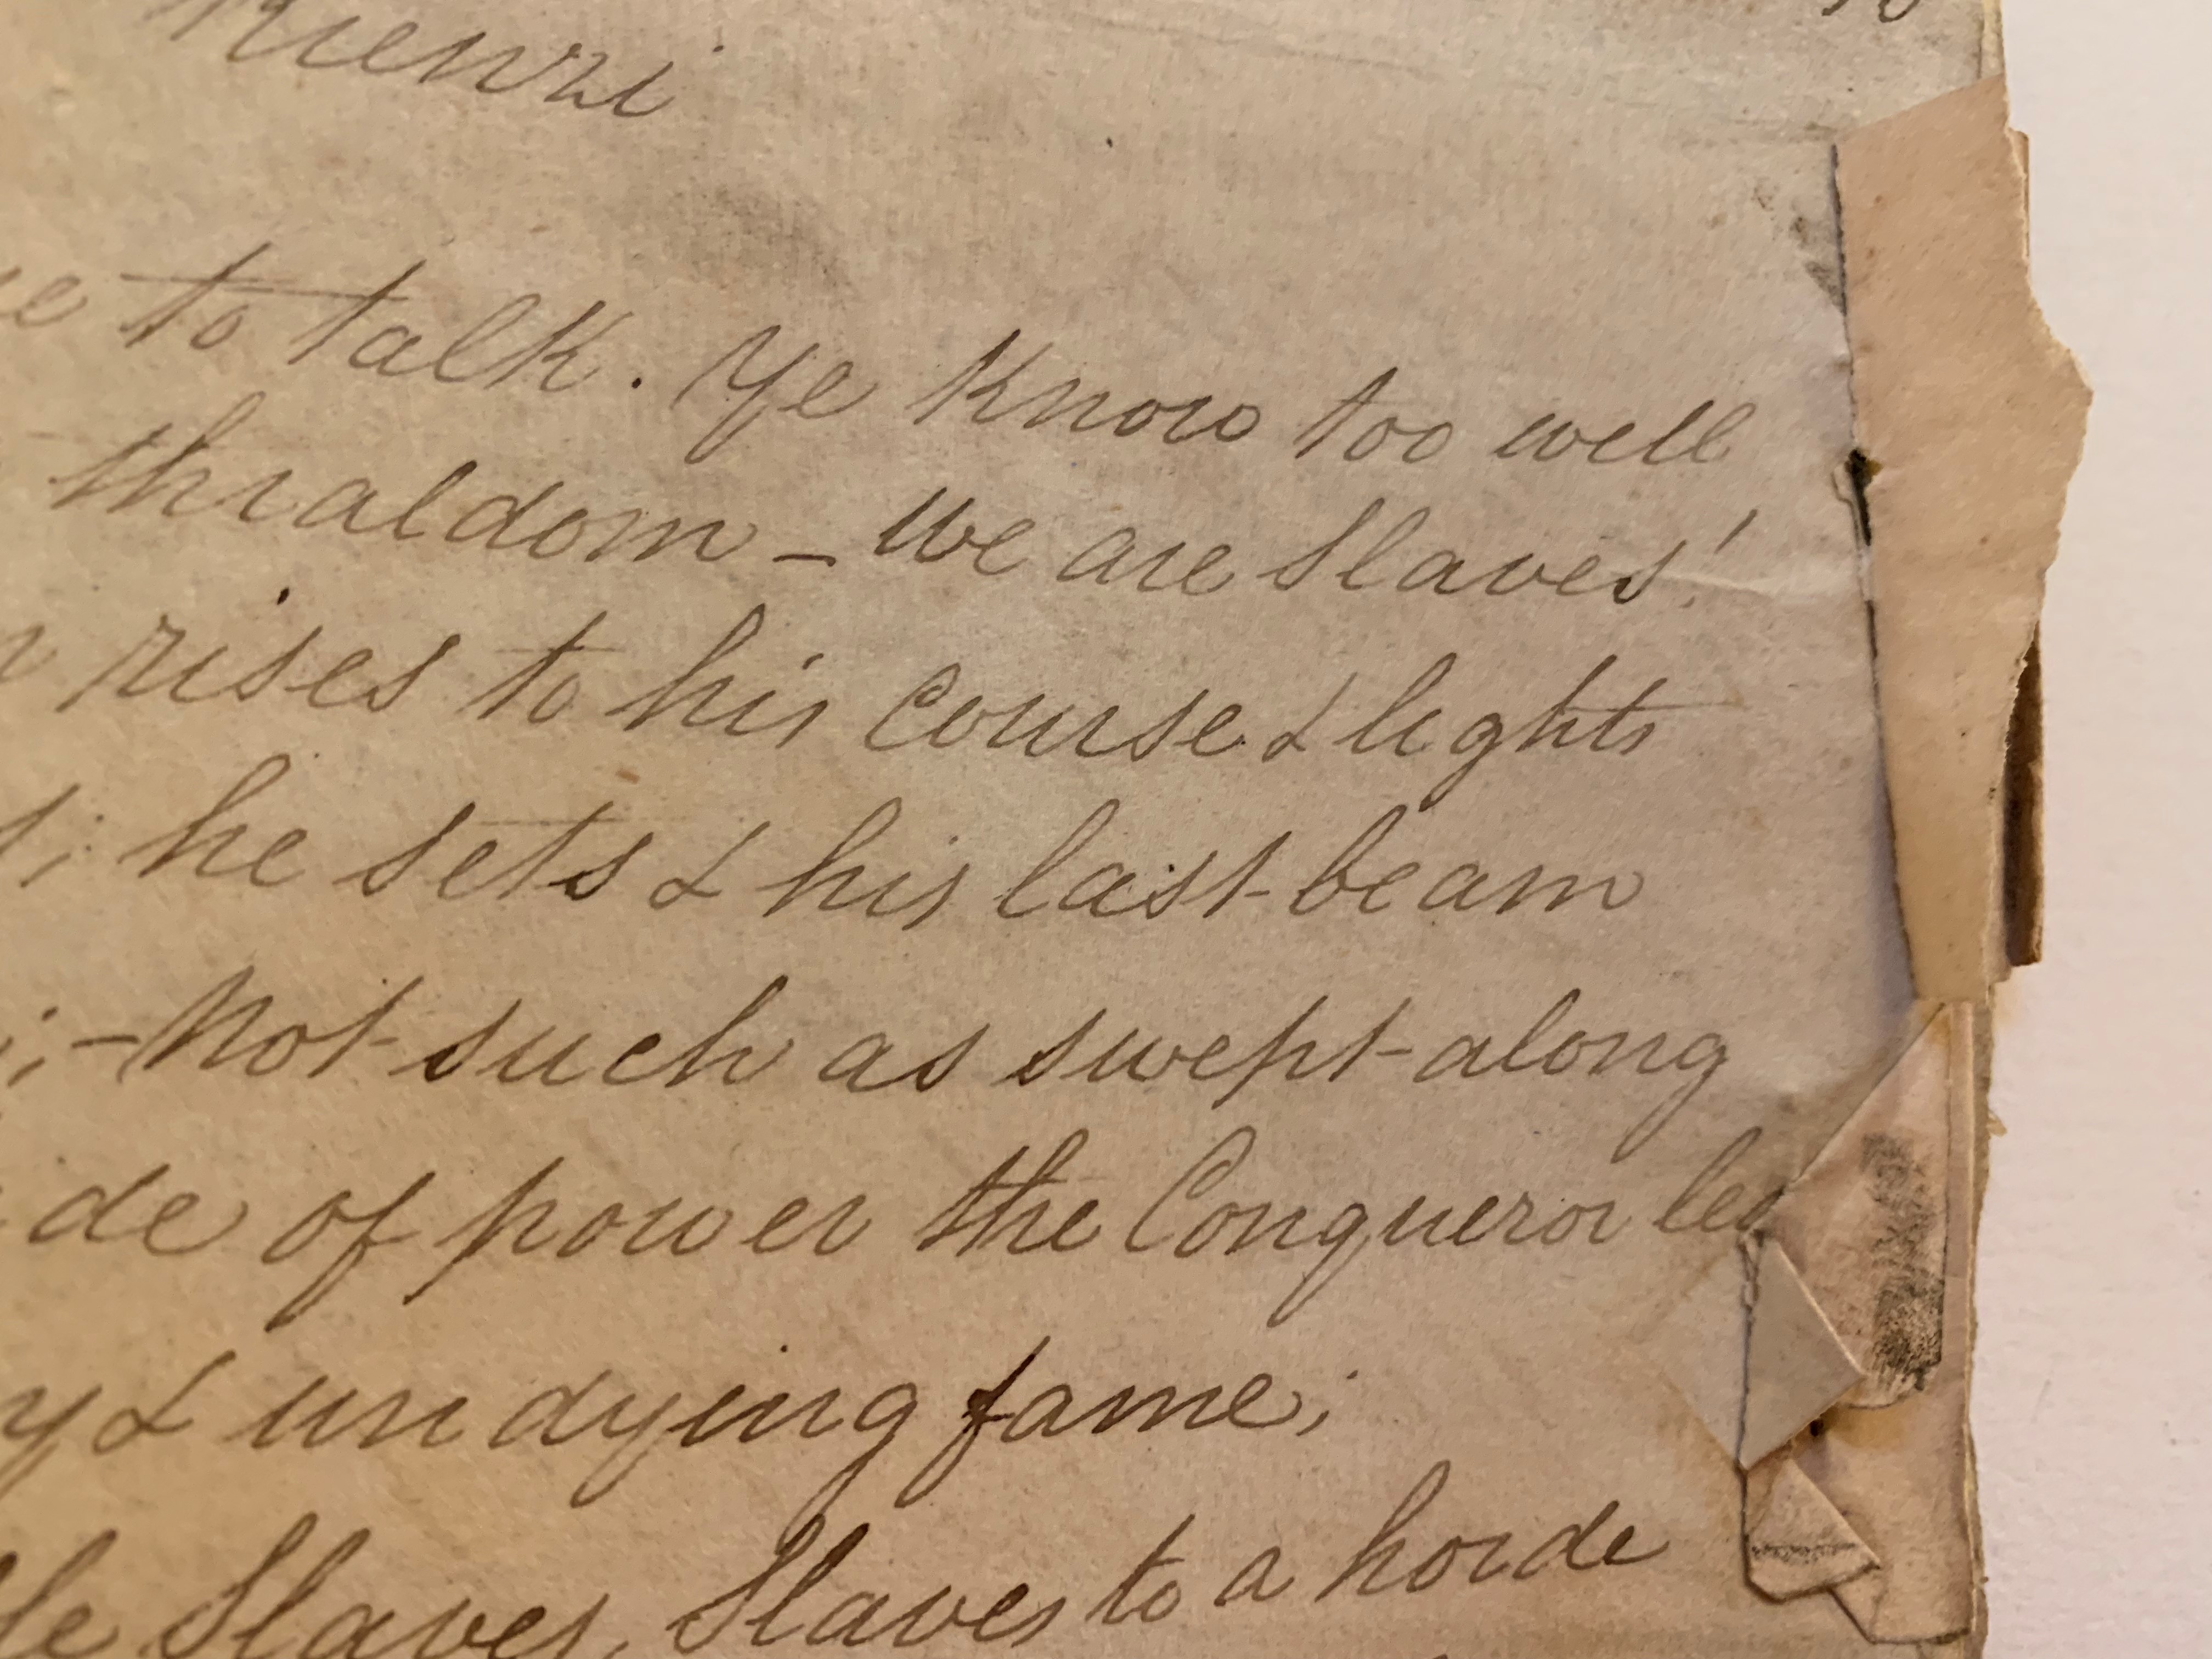 Rienzi
to talk. Ye Know too well
thraldom – We are Slaves!
rises to his Course & lights
; he sets & his last beam
; – Not such as swept along
de of power the Conqueror led
y & undying fame;
le Slaves, Slaves to a horde